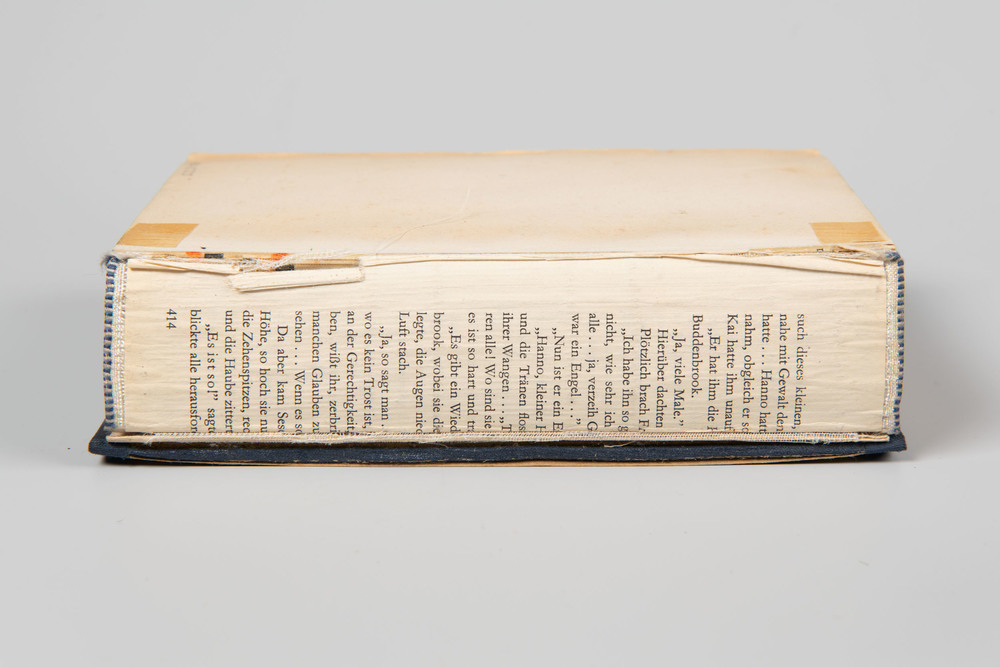 such dieses kleinen,
nahe mit Gewalt den
hatte . . . Hanno hatt
nahm, obgleich er sc
Kai hatte ihm unauf
„Er hat ihm die H
Buddenbrook.
„Ja, viele Male.“
Hierüber dachten
Plötzlich brach Fr
„Ich habe ihn so g
nicht, wie sehr ich
alle . . . ja, verzeih G
war ein Engel . . .“
„Nun ist er ein E
„Hanno, kleiner H
und die Tränen flos
ihrer Wangen . . . „T
ren alle! Wo sind sie
es ist so hart und tr
„Es gibt ein Wied
brook, wobei sie die
legte, die Augen nied
Luft stach.
„Ja, so sagt man .
wo es kein Trost ist,
an der Gerechtigkeit
ben, wißt ihr, zerbri
manchen Glauben zu
sehen . . . Wenn es so
Da aber kam Sesi
Höhe, so hoch sie nu
die Zehenspitzen, rec
und die Haube zittert
„Es ist so!“ sagte
blickte alle herausfor
414